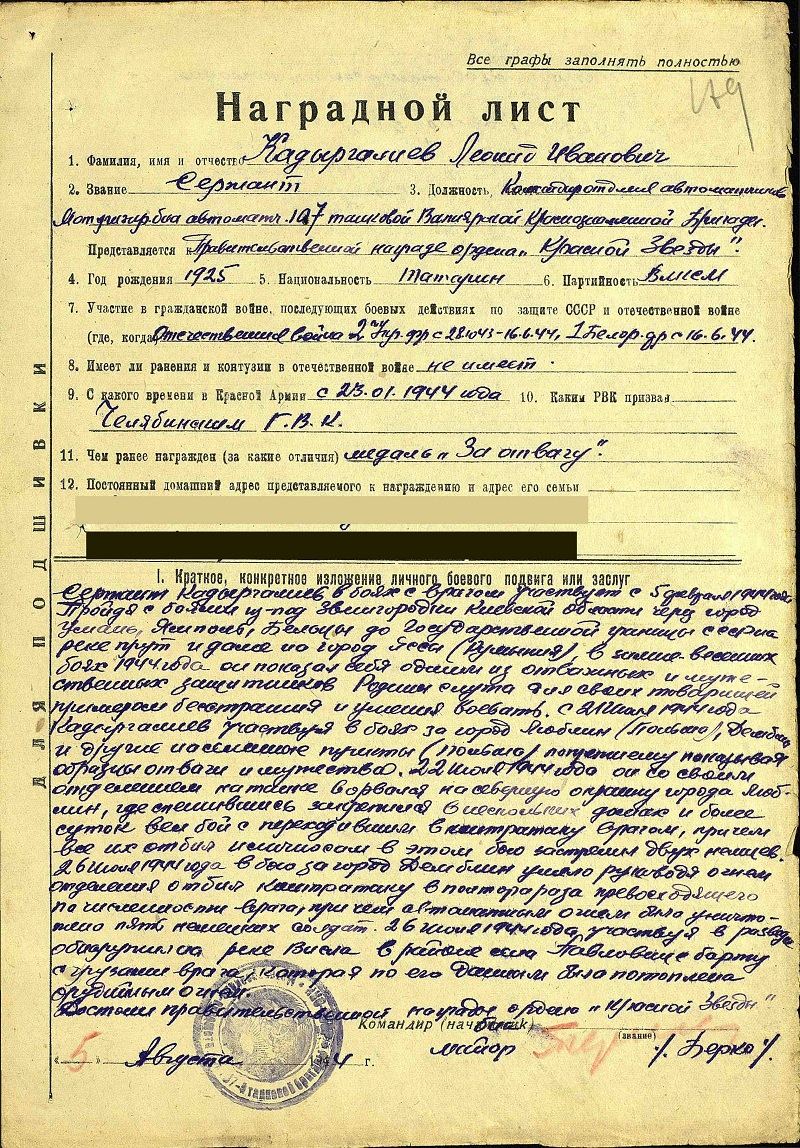 Все графы заполнять полностью
179
Наградной лист
1. Фамилия, имя и отчество Кадыргалиев Леонид Иванович
2. Звание Сержант 3. Должность Командир отд-ия автоматчиков
Мотриж. б-на автомат. 107 танковой Вапнярской Краснознаменной Бригады.
Представляется к Правительственной награде ордена „Красной Звезды".
4. Год рождения 1925 5. Национальность Татарин 6. Партийность Влксм
7. Участие в гражданской войне, последующих боевых действиях по защите СССР и отечественной войне
(где, когда) Отечественная война 2 Укр. фр с 28.1.43-16.6.44, 1 Белор. фр с 16.6.44.
8. Имеет ли ранения и контузии в отечественной войне не имеет.
9. С какого времени в Красной Армии с 23.01.1944 года 10. Каким РВК призван
Челябинским Г.В.К.
11. Чем ранее награжден (за какие отличия) медаль „За отвагу".
12. Постоянный домашний адрес представляемого к награждению и адрес его семьи
ДЛЯ ПОДШИВКИ
I. Краткое, конкретное изложение личного боевого подвига или заслуг
Сержант Кадыргалиев в боях с врагом участвует с 5 февраля 1944 года
Пройдя с боями из-под Звенигородки Киевской области через город
Умань, Ямполь, Бельцы до Государственной границы СССР на
реке прут и далее на город Яссы (Румыния), в зимне-весенних
боях 1944 года он показал себя одним из отважных и муже-
ственных защитников Родины служа для своих товарищей
примером бесстрашия и умения воевать. С 21 июля 1944 года
Кадыргалиев участвуя в боях за город Люблин (Польша), Демблин
и другие населенные пункты (Польша) попрежнему показывая
образцы отваги и мужества. 22 июля 1944 года он со своим
отделением на танке ворвался на северную окраину города Люб-
лин, где спешившись закрепился в нескольких домах и более
суток вел бой с переходившим в контратаку врагом, причем
все их отбил и лично сам в этом бою застрелил двух немцев.
26 июля 1944 года в бою за город Демблин умело руководя огнем
отделения отбил контратаку в полтора раза превосходящего
по численности врага, при чем автоматным огнем было уничто-
жено пять немецких солдат. 26 июля 1944 года, участвуя в разведке
обнаружил на реке Висла в районе села Павловице баржу
с грузами врага, которая по его данным была потоплена
орудийным огнем.
Достоин правительственной награды ордена „Красной Звезды"
Командир (начальник)
(звание)
майор /Берко/.
„5" Августа 1944 г.